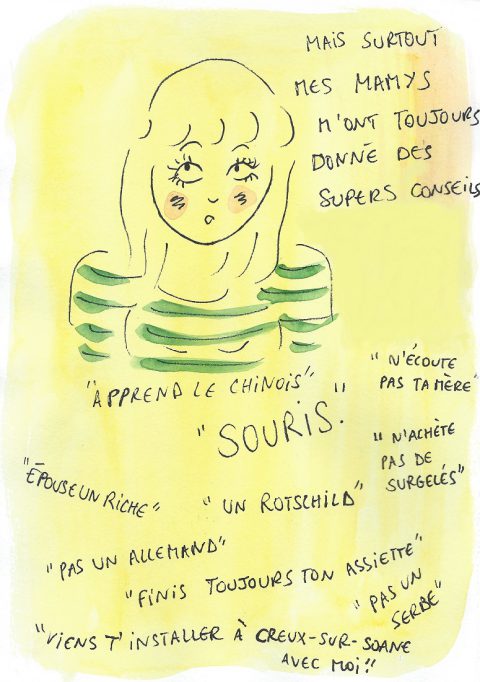 MAIS SURTOUT
MES MAMYS
M'ONT TOUJOURS
DONNÉ DES
SUPERS CONSEILS
"APPREND LE CHINOIS"
"N'ÉCOUTE
PAS TA MÈRE"
"SOURIS."
"N'ACHÈTE
PAS DE
SURGELÉS"
"ÉPOUSE UN RICHE"
"UN ROTSCHILD"
"PAS UN ALLEMAND"
"FINIS TOUJOURS TON ASSIETTE"
"PAS UN
SERBE"
"VIENS T'INSTALLER À CREUX-SUR-SOANE
AVEC MOI"